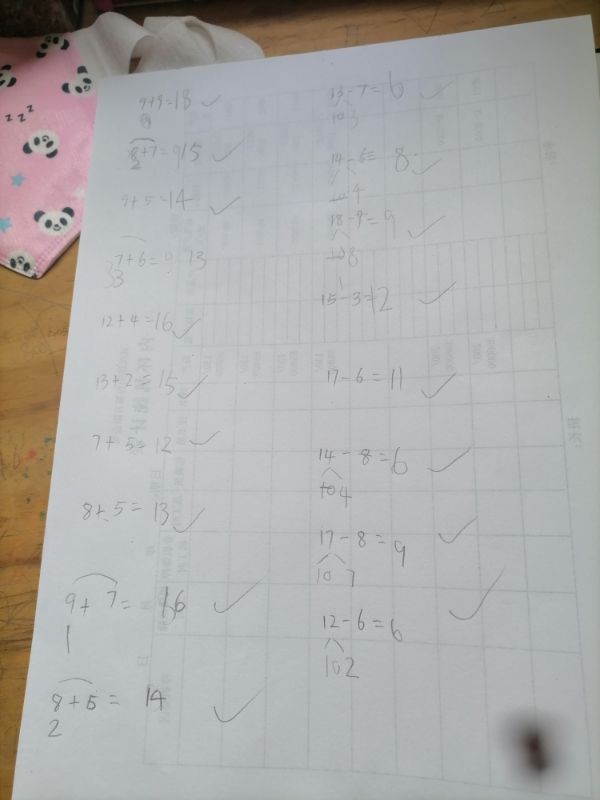 9+9=18
8+7=915
2
9+5=14
7+6= 13
3
12+4=16
13+2=15
7+5=12
8+5=13
9+7=16
1
8+5=14
2
13-7=6
10 3
14-6=8
10 4
18-9=9
10 8
15-3=12
17-6=11
14-8=6
10 4
17-8=9
10 7
12-6=6
10 2